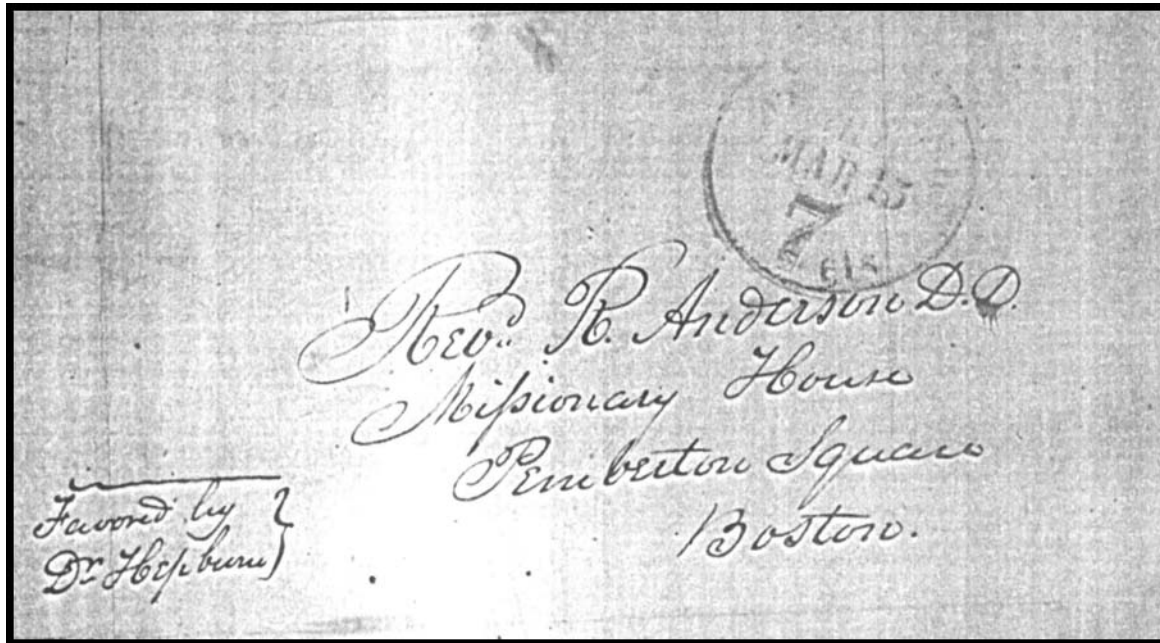 MAR 15
7
cts
Revd. R. Anderson D.D.
Missionary House
Pemberton Square
Boston.
Favored by
Dr Hepburn